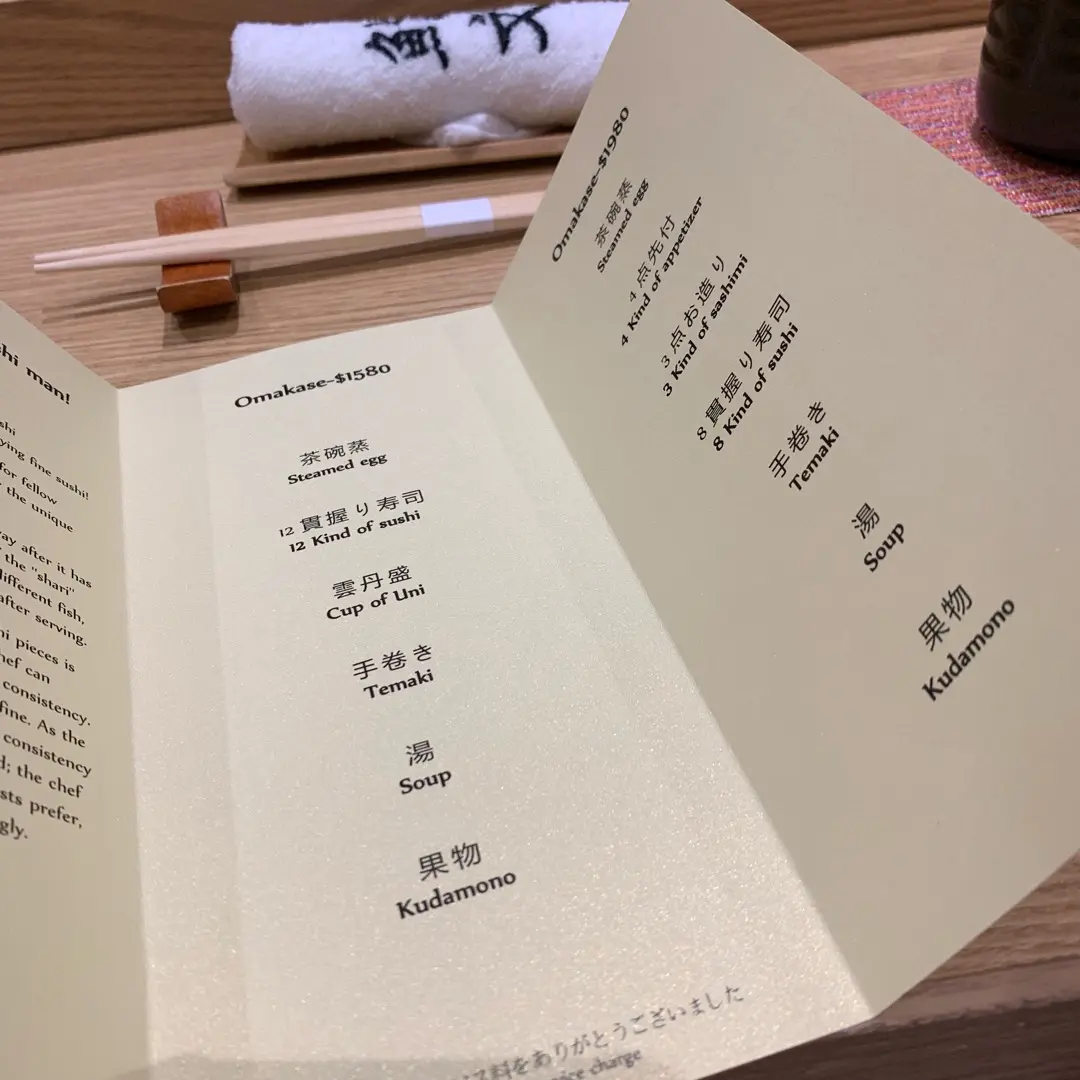 shi man!
shi
ying fine sushi!
for fellow
the unique
way after it has
the "shari"
different fish,
after serving.
hi pieces is
hef can
consistency.
fine. As the
consistency
d; the chef
sts prefer,
gly.
Omakase-$1580
茶碗蒸
Steamed egg
12 貫握り寿司
12 Kind of sushi
雲丹盛
Cup of Uni
手巻き
Temaki
湯
Soup
果物
Kudamono
料をありがとうございました
charge
Omakase-$1980
茶碗蒸
Steamed egg
4 点先付
4 Kind of appetizer
3 点お造り
3 Kind of sashimi
8 貫握り寿司
8 Kind of sushi
手巻き
Temaki
湯
Soup
果物
Kudamono